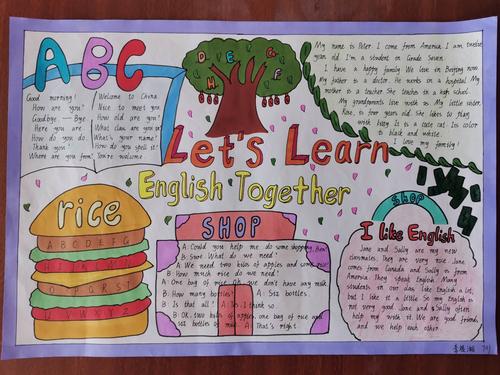 ABC
Good morning!
How are you?
Goodbye — Bye
Here you are.
How do you do.
Thank you!
Where are you from?
Welcome to China
Nice to meet you
How old are you?
What class are you in?
What's your name?
How do you spell it?
You're welcome
D E G
M H F
My name is Peter I come from America I am twelve
year old I'm a student in Grade Seven
I have a happy family We live in Beijing now.
My father is a doctor. He works in a hospital My
mother is a teacher She teaches in a high school.
My grandparents live with us My little sister,
Rose, is four years old She likes to play
with kitty It is a cute cat Its color
is black and white.
I love my family!
Let's Learn
English Together
rice
A B C D E F G
U V W X Y Z
SHOP
A: Could you help me do some shopping, Ben?
B: Sure. What do we need?
A: We need two kilos of apples and some rice
B: How much rice do we need?
A: One bag of rice Oh, we don't have any milk
B: How many bottles?
A: Six bottles.
B: Is that all?
A: Yes, I think so
B: OK, two kilos of apples, one bag of rice and
six bottles of milk
A: That's right
SHOP
I like English
Jane and Sally are my new
classmates. They are very nice Jane
comes from Canada and Sally is from
America. They speak English Many
students in our class like English a lot,
but I like it a little So my English is
not very good Jane and Sally often
help my with it. We are good friends,
and we help each other.
701